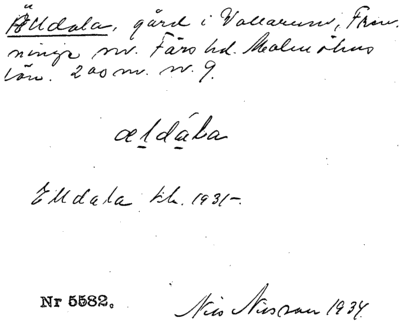 Älldala, gård i Vollarum, Fren-
ninge sn. Färs hd. Malmöhus
län. 200 m. v. 9.
ældála
Elldala kh. 1931-.
Nr 5582.
Nils Nilsson 1934.